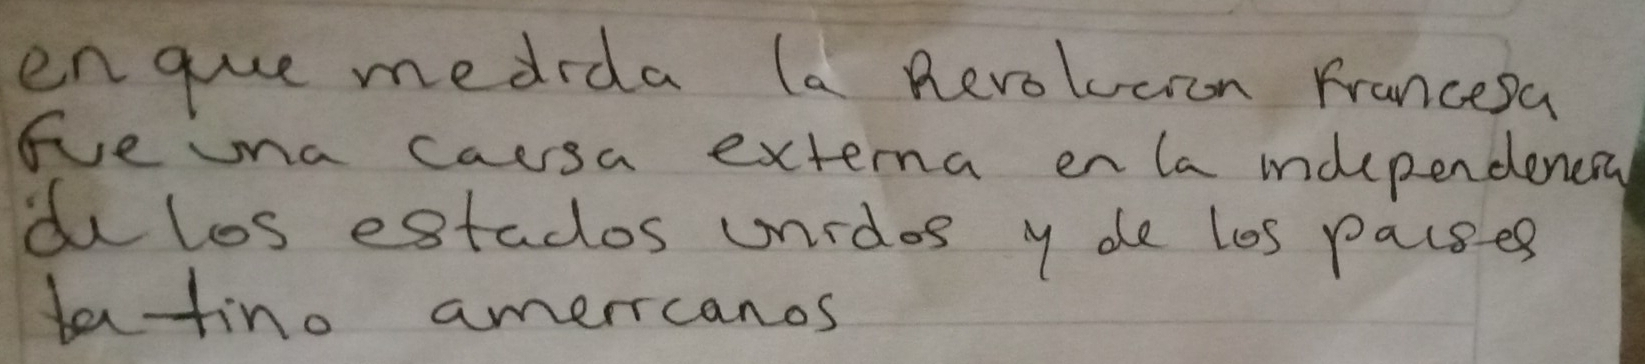 en que medida la Revolucion Francesa
fue una causa externa en la independencia
de los estados unidos y de los paises
latino americanos